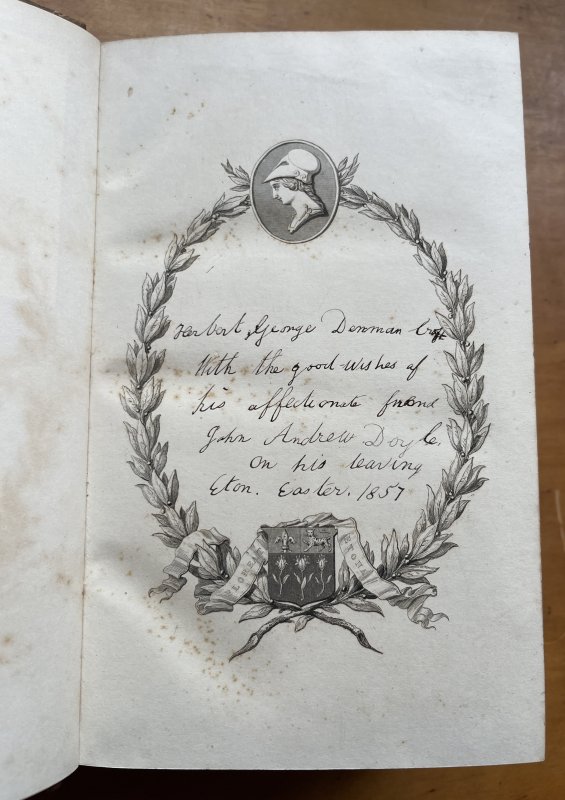 Herbert George Denman Croft
With the good wishes of
his affectionate friend
John Andrew Doyle,
On his leaving
Eton. Easter. 1857
FLOREAT ETONA